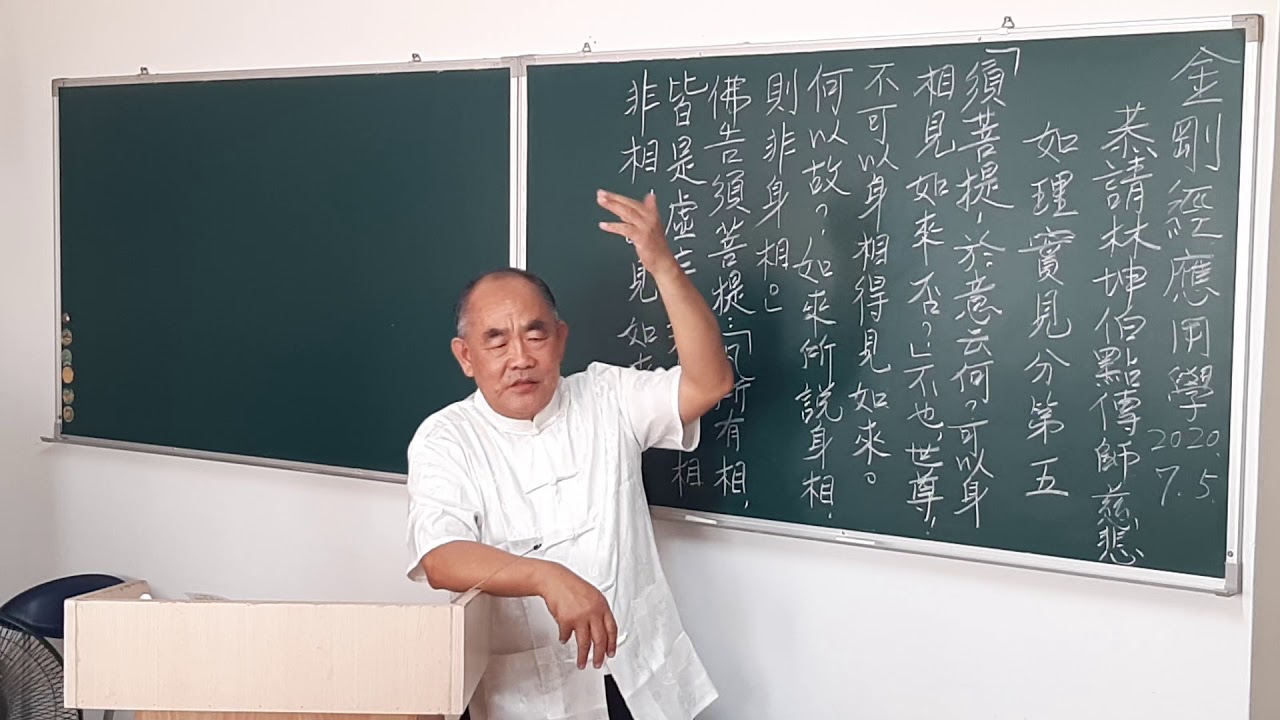 金剛經應用學
2020.
7.5.
恭請林坤伯點傳師慈悲
如理實見分第五
「須菩提,於意云何?可以身
相見如來否?」不也,世尊!
不可以身相得見如來。
何以故?如來所說身相,
則非身相。」
佛告須菩提:「凡所有相,
皆是虛 相
非相, 見如來